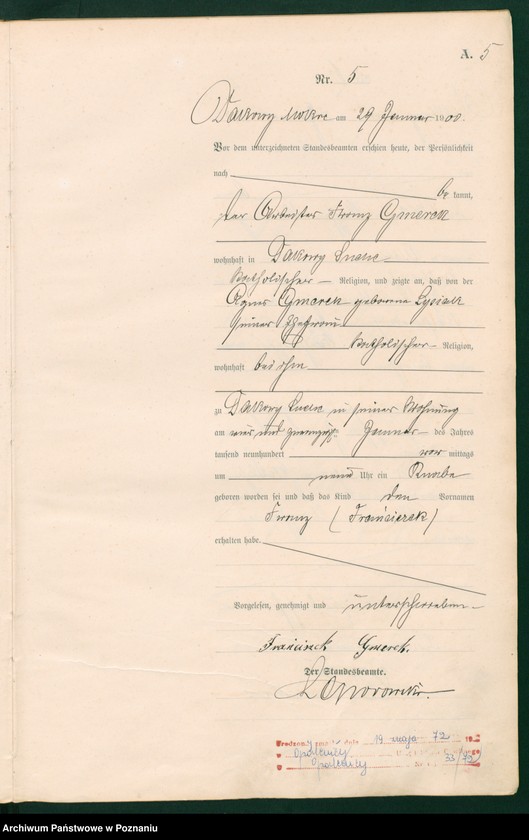 A. 5
Nr. 5
Dakowy mokre am 29 Januar 1900.
Vor dem unterzeichneten Standesbeamten erschien heute, der Persönlichkeit
nach
be kannt,
der Arbeiter Franz Gmerek
wohnhaft in Dakowy Suche
katholischer Religion, und zeigte an, daß von der
Agnes Gmerek geborene Lysiak
seiner Ehefrau
katholischer Religion,
wohnhaft bei ihm
zu Dakowy Suche in seiner Wohnung
am Januar des Jahres
tausend neunhundert vor mittags
um neun Uhr ein Knabe
geboren worden sei und daß das Kind den Vornamen
Franz (Franciszek)
erhalten habe.
Vorgelesen, genehmigt und unterschrieben
Franciszek Gmerek.
Der Standesbeamte.
19 maja 72
Opalenicy
Opalenicy 33/72
Archiwum Państwowe w Poznaniu